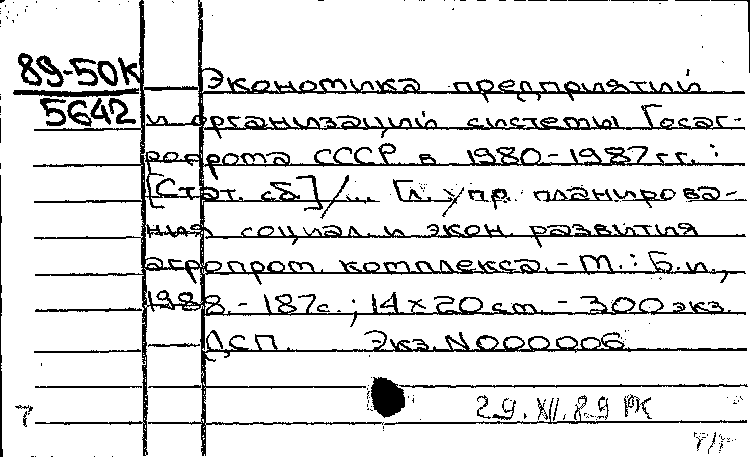 89-50К
5642
Экономика предприятий
и организаций системы Госаг-
ропрома СССР в 1980-1987 гг. :
[Стат. сб.]/... Гл. упр. планирова-
ния социал. и экон. развития
агропром. комплекса. - М. : Б.и.,
1988. - 187с. ; 14 x 20 см. - 300 экз.
ДСП. Экз. N000006
29.XII.89 РК
7